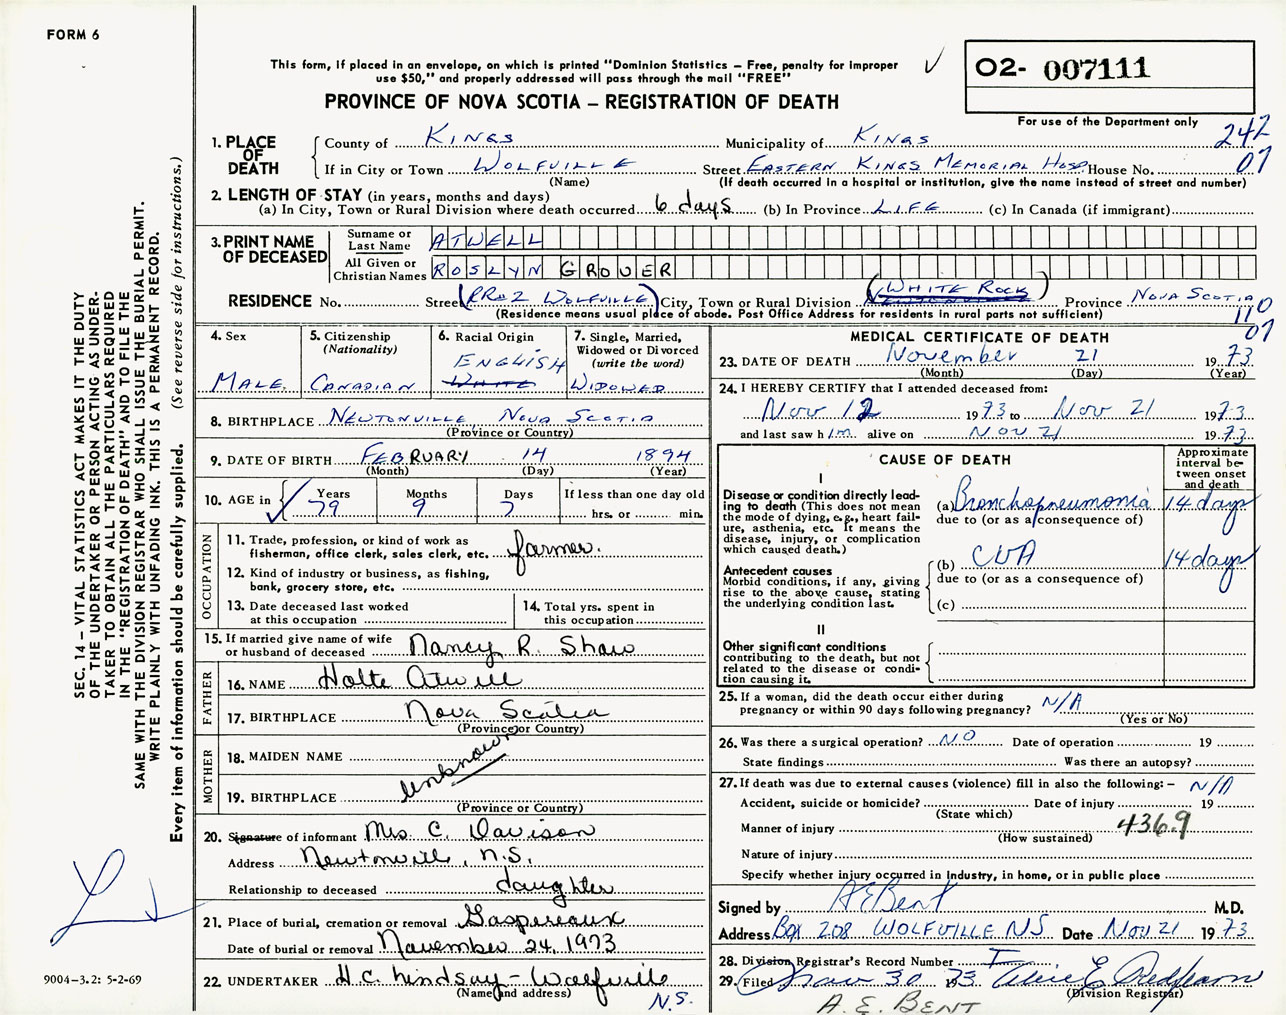 FORM 6
This form, if placed in an envelope, on which is printed "Dominion Statistics – Free, penalty for improper
use $50," and properly addressed will pass through the mail "FREE"
PROVINCE OF NOVA SCOTIA – REGISTRATION OF DEATH
02- 007111
For use of the Department only
242
07
1. PLACE OF DEATH
County of KINGS Municipality of KINGS
If in City or Town WOLFVILLE Street EASTERN KINGS MEMORIAL HOSP House No.
(Name) (If death occurred in a hospital or institution, give the name instead of street and number)
2. LENGTH OF STAY (in years, months and days)
(a) In City, Town or Rural Division where death occurred 6 days (b) In Province LIFE (c) In Canada (if immigrant)
3. PRINT NAME OF DECEASED
Surname or Last Name ATWELL
All Given or Christian Names ROSLYN GROVER
RESIDENCE No. Street (RR#2 WOLFVILLE) City, Town or Rural Division (WHITE ROCK) Province NOVA SCOTIA
(Residence means usual place of abode. Post Office Address for residents in rural parts not sufficient)
110
07
4. Sex
MALE
5. Citizenship
(Nationality)
CANADIAN
6. Racial Origin
ENGLISH
WHITE
7. Single, Married,
Widowed or Divorced
(write the word)
WIDOWED
8. BIRTHPLACE NEWTONVILLE NOVA SCOTIA
(Province or Country)
9. DATE OF BIRTH FEBRUARY 14 1894
(Month) (Day) (Year)
10. AGE in Years 79 Months 9 Days 7 If less than one day old
hrs. or min.
OCCUPATION
11. Trade, profession, or kind of work as
fisherman, office clerk, sales clerk, etc. farmer.
12. Kind of industry or business, as fishing,
bank, grocery store, etc.
13. Date deceased last worked
at this occupation
14. Total yrs. spent in
this occupation
15. If married give name of wife
or husband of deceased Nancy R. Shaw
FATHER
16. NAME Holte Atwell
17. BIRTHPLACE Nova Scotia
(Province or Country)
MOTHER
18. MAIDEN NAME
Unknown
19. BIRTHPLACE
(Province or Country)
20. Signature of informant Mrs. C. Davison
Address Newtonville, N.S.
Relationship to deceased daughter
21. Place of burial, cremation or removal Gaspereaux
Date of burial or removal November 24, 1973
22. UNDERTAKER H.C. Lindsay – Wolfville
(Name and address) N.S.
MEDICAL CERTIFICATE OF DEATH
23. DATE OF DEATH November 21 1973
(Month) (Day) (Year)
24. I HEREBY CERTIFY that I attended deceased from:
Nov 12 1973 to Nov 21 1973
and last saw him alive on NOV 21 1973
CAUSE OF DEATH
Approximate interval between onset and death
I
Disease or condition directly lead-
ing to death (This does not
mean the mode of dying, e.g., heart fail-
ure, asthenia, etc. It means the
disease, injury, or complication
which caused death.)
(a) Bronchopneumonia 14 days
due to (or as a consequence of)
Antecedent causes
Morbid conditions, if any, giving
rise to the above cause, stating
the underlying condition last.
(b) CVA 14 days
due to (or as a consequence of)
(c)
II
Other significant conditions
contributing to the death, but not
related to the disease or condi-
tion causing it.
25. If a woman, did the death occur either during
pregnancy or within 90 days following pregnancy? N/A
(Yes or No)
26. Was there a surgical operation? NO Date of operation 19
State findings Was there an autopsy?
27. If death was due to external causes (violence) fill in also the following:– N/A
Accident, suicide or homicide? Date of injury 19
(State which)
Manner of injury 4369
(How sustained)
Nature of injury
Specify whether injury occurred in Industry, in home, or in public place
Signed by A E Bent M.D.
Address Box 208 WOLFVILLE NS Date NOV 21 1973
28. Division Registrar's Record Number
29. Filed Nov 30 1973
(Division Registrar)
A. E. BENT
SEC. 14 – VITAL STATISTICS ACT MAKES IT THE DUTY
OF THE UNDERTAKER OR PERSON ACTING AS UNDER-
TAKER TO OBTAIN ALL THE PARTICULARS REQUIRED
IN THE "REGISTRATION OF DEATH" AND TO FILE THE
SAME WITH THE DIVISION REGISTRAR WHO SHALL ISSUE THE BURIAL PERMIT.
WRITE PLAINLY WITH UNFADING INK. THIS IS A PERMANENT RECORD.
Every item of information should be carefully supplied. (See reverse side for instructions.)
9004–3.2: 5-2-69